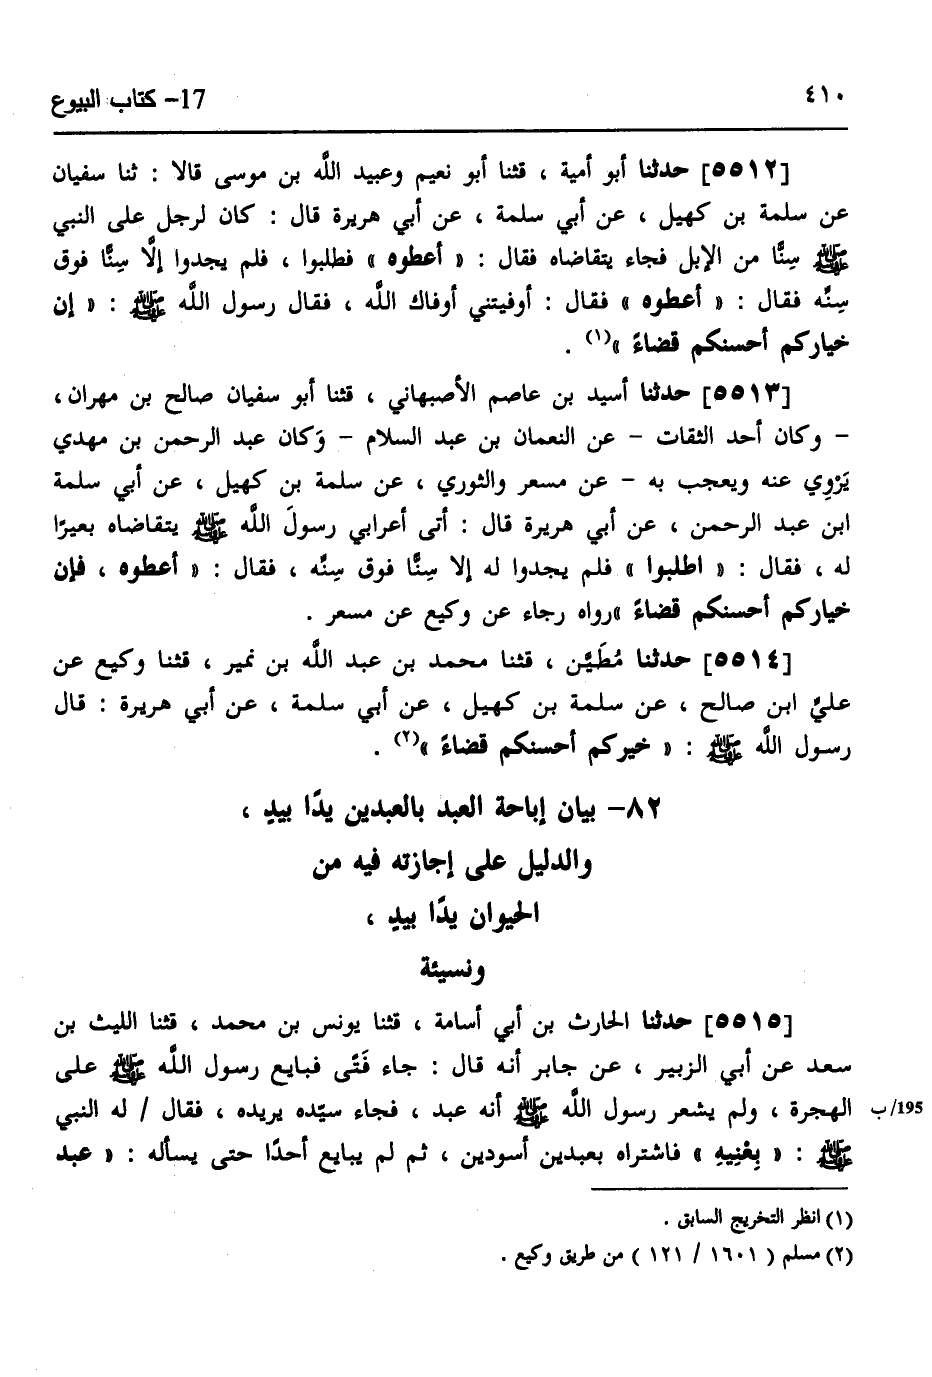 ٤١٠
17- كتاب البيوع
[٥٥١٢] حدثنا أبو أمية ، قثنا أبو نعيم وعبيد اللَّه بن موسى قالا : ثنا سفيان
عن سلمة بن كهيل ، عن أبي سلمة ، عن أبي هريرة قال : كان لرجل على النبي
ﷺ سِنًّا من الإبل فجاء يتقاضاه فقال : « أعطوه » فطلبوا ، فلم يجدوا إلَّا سِنًّا فوق
سِنِّه فقال : « أعطوه » فقال : أوفيتني أوفاك اللَّه ، فقال رسول اللَّه ﷺ : « إن
خياركم أحسنكم قضاءً »(١) .
[٥٥١٣] حدثنا أسيد بن عاصم الأصبهاني ، قثنا أبو سفيان صالح بن مهران ،
– وكان أحد الثقات – عن النعمان بن عبد السلام – وَكان عبد الرحمن بن مهدي
يَرْوِي عنه ويعجب به – عن مسعر والثوري ، عن سلمة بن كهيل ، عن أبي سلمة
ابن عبد الرحمن ، عن أبي هريرة قال : أتى أعرابي رسولَ اللَّه ﷺ يتقاضاه بعيرًا
له ، فقال : « اطلبوا » فلم يجدوا له إلا سِنًّا فوق سِنِّه ، فقال : « أعطوه ، فإن
خياركم أحسنكم قضاءً »رواه رجاء عن وكيع عن مسعر .
[٥٥١٤] حدثنا مُطَيَّن ، قثنا محمد بن عبد اللَّه بن نمير ، قثنا وكيع عن
عليِّ ابن صالح ، عن سلمة بن كهيل ، عن أبي سلمة ، عن أبي هريرة : قال
رسول اللَّه ﷺ : « خيركم أحسنكم قضاءً »(٢) .
٨٢– بيان إباحة العبد بالعبدين يدًا بيدٍ ،
والدليل على إجازته فيه من
الحيوان يدًا بيدٍ ،
ونسيئة
[٥٥١٥] حدثنا الحارث بن أبي أسامة ، قثنا يونس بن محمد ، قثنا الليث بن
سعد عن أبي الزبير ، عن جابر أنه قال : جاء فَتًى فبايع رسول اللَّه ﷺ على
الهجرة ، ولم يشعر رسول اللَّه ﷺ أنه عبد ، فجاء سيّده يريده ، فقال / له النبي
195/ب
ﷺ : « بِعْنِيهِ » فاشتراه بعبدين أسودين ، ثم لم يبايع أحدًا حتى يسأله : « عبد
(١) انظر التخريج السابق .
(٢) مسلم ( ١٦٠١ / ١٢١ ) من طريق وكيع .